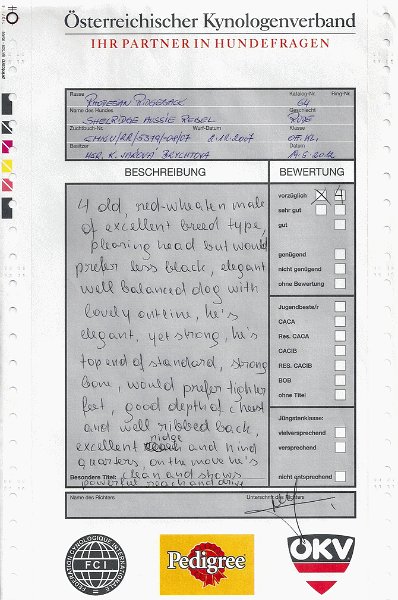 Österreichischer Kynologenverband
IHR PARTNER IN HUNDEFRAGEN
Rasse Katalog-Nr. Ring-Nr.
RHODESIAN RIDGEBACK 64
Name des Hundes Geschlecht
SHELRIDGE AUSSIE REBEL RÜDE
Zuchtbuch-Nr. Wurf-Datum Klasse
2.12.2007
Besitzer Datum
BESCHREIBUNG BEWERTUNG
4 old, red-wheaten male
of excellent breed type,
pleasing head but would
prefer less black, elegant
well balanced dog with
lovely outline, he's
elegant, yet strong, he's
top end of standard, strong
bone, would prefer tighter
feet, good depth of chest
and well ribbed back,
excellent ridge and hind
quarters, on the move he's
Besondere Titel: clean and shows
powerful reach and drive
vorzüglich 4
sehr gut
gut
genügend
nicht genügend
ohne Bewertung
Jugendbeste/r
CACA
Res. CACA
CACIB
RES. CACIB
BOB
ohne Titel
Jüngstenklasse:
vielversprechend
versprechend
nicht entsprechend
Name des Richters Unterschrift des Richters
FEDERATION CYNOLOGIQUE INTERNATIONALE
FCI
Pedigree
ÖKV